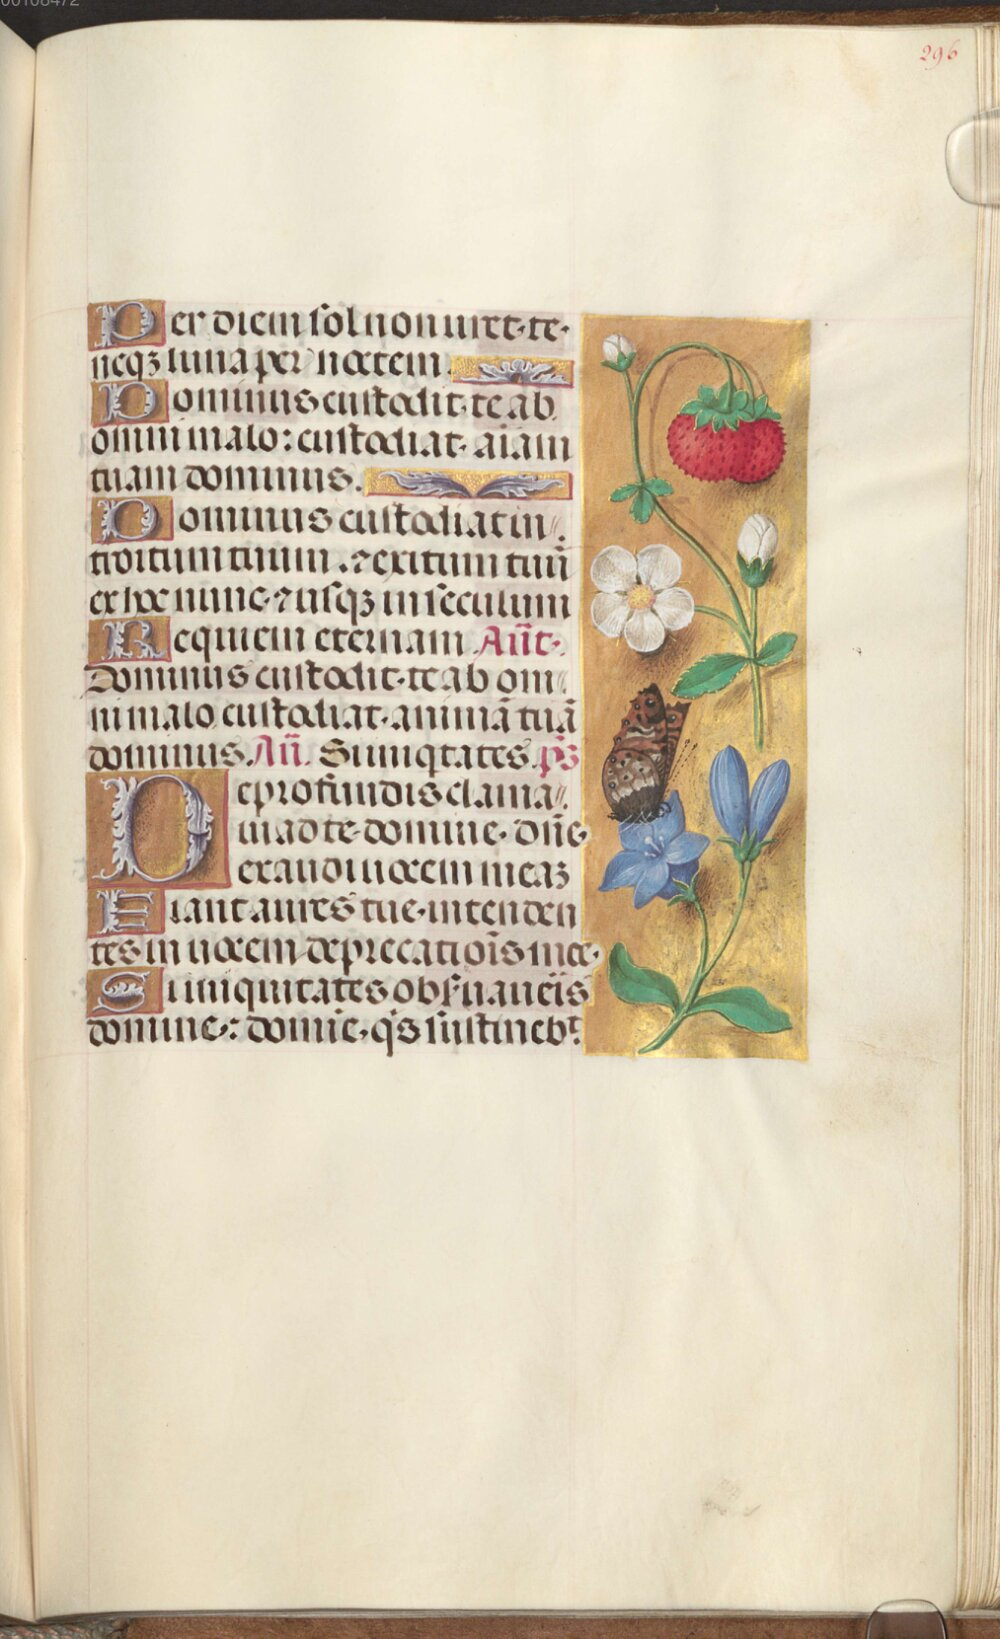 00108472
296
Per diem sol non uret te
neqꝫ luna per noctem.
Dominus custodit te ab
omni malo: custodiat aīam
tuam dominus.
Dominus custodiat in
troitum tuum. ⁊ exitum tuū
ex hoc nunc ⁊ usqꝫ in seculum
Requiem eternam Añt.
Dominus custodit te ab om
ni malo custodiat animā tuā
dominus. Añ. Si iniqtates. ps̄
De profundis clama
ui ad te domine. dñe
exaudi uocem meaꝫ
Fiant aures tue intenden
tes in uocem deprecatiōis mee.
Si iniquitates obsuaueris
domine: domie. qͥs sustinebt.